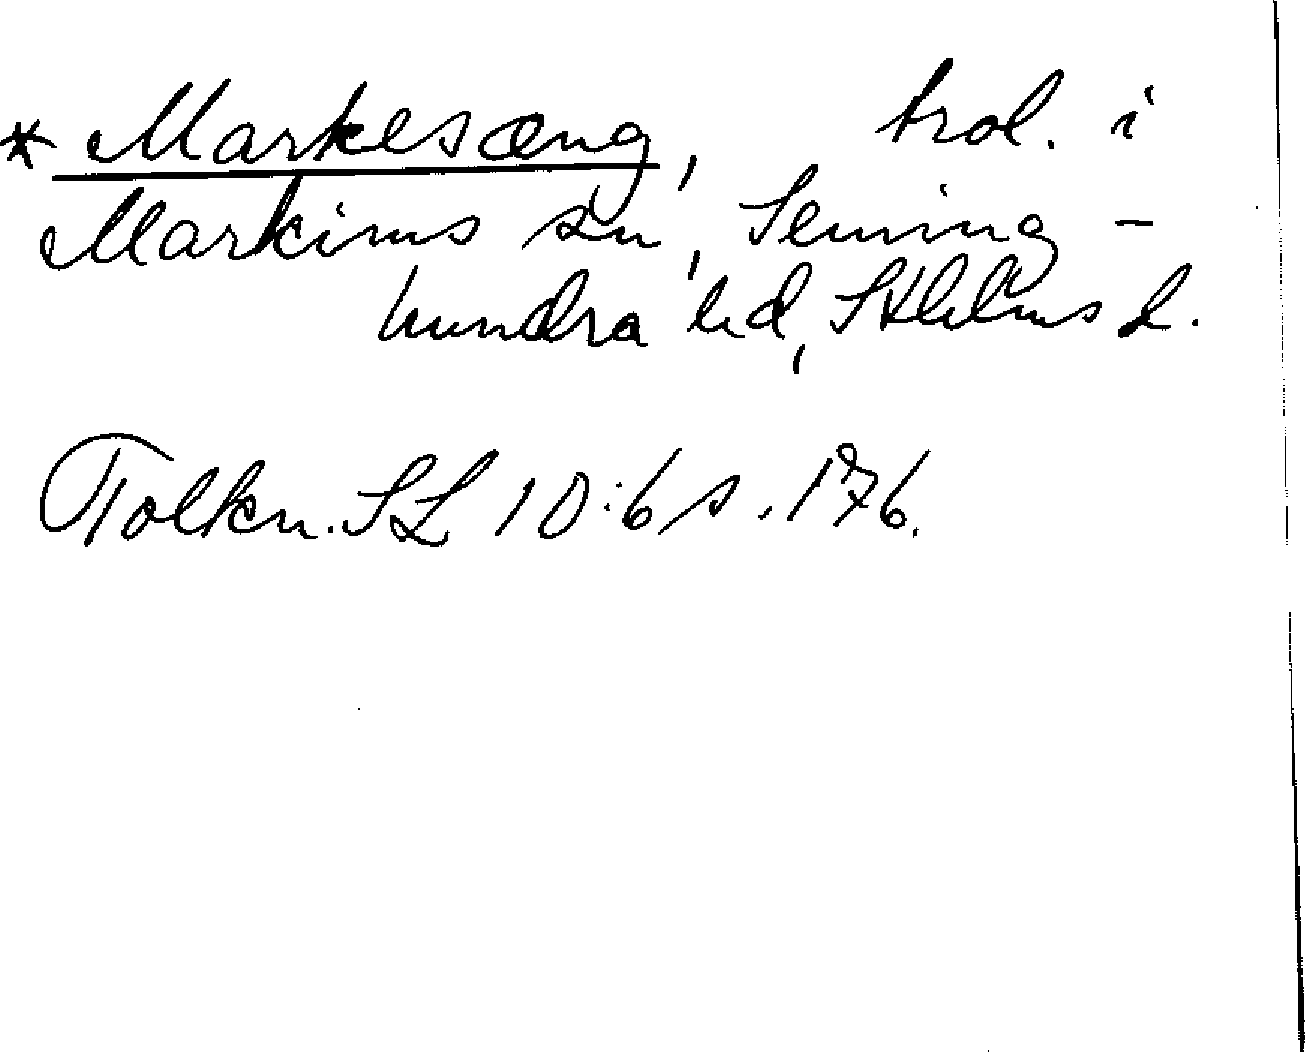 * Markesæng, trol. i
Markims sn, Seming-
hundra hd, Sthlms l.
Tolkn. SL 10:6 s. 176.